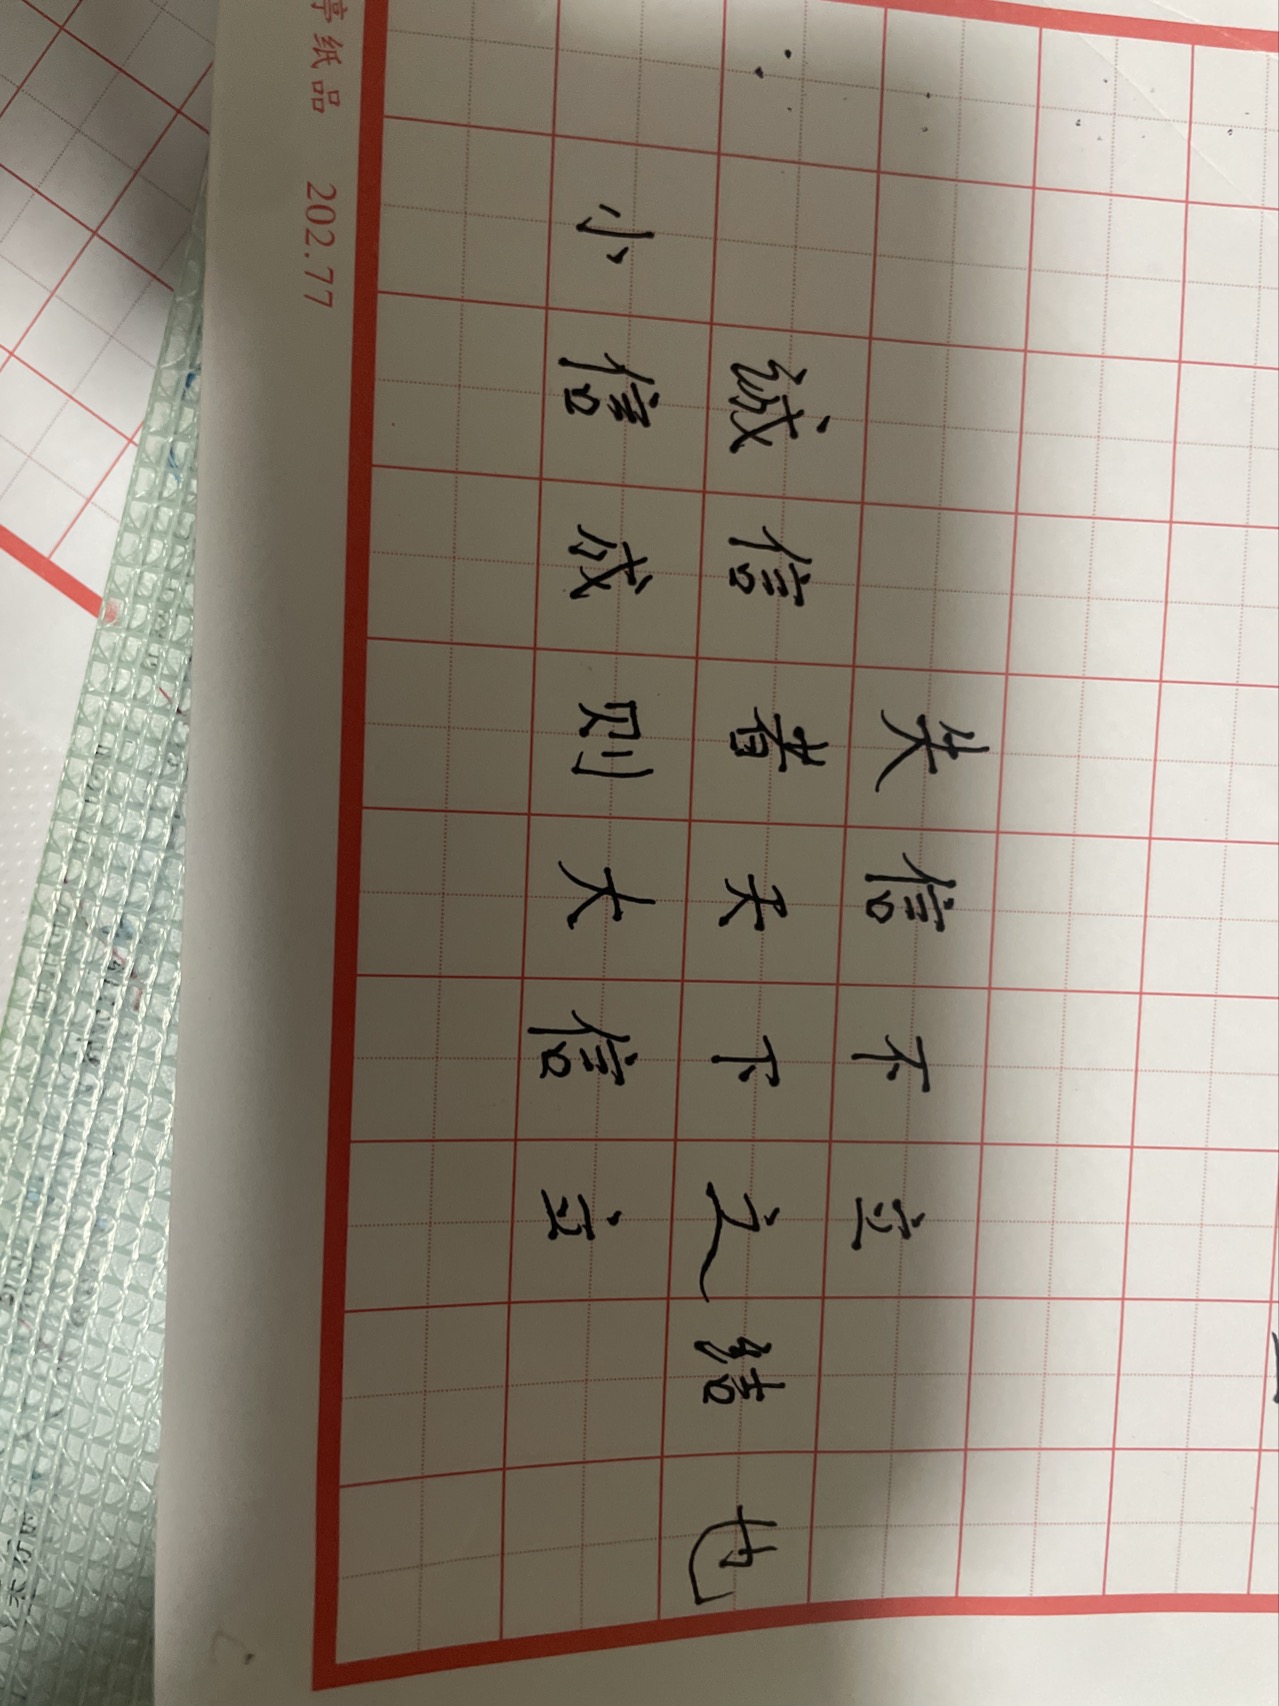 失信不立
诚信者天下之结也
小信成则大信立
纸品 202.77